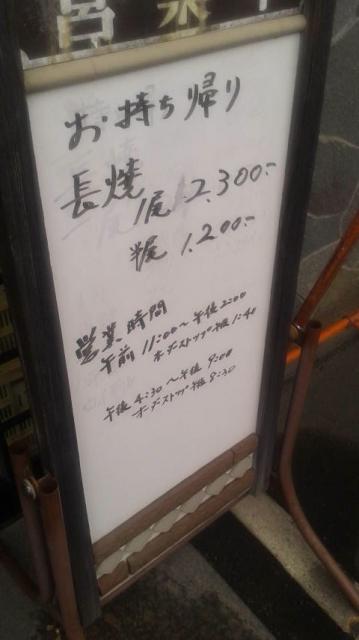 お持ち帰り
長焼
1尾 2.300.-
半尾 1.200.-
営業時間
午前 11:00〜午後2:00
オーダーストップ午後1:40
午後4:30〜午後9:00
オーダーストップ午後8:30